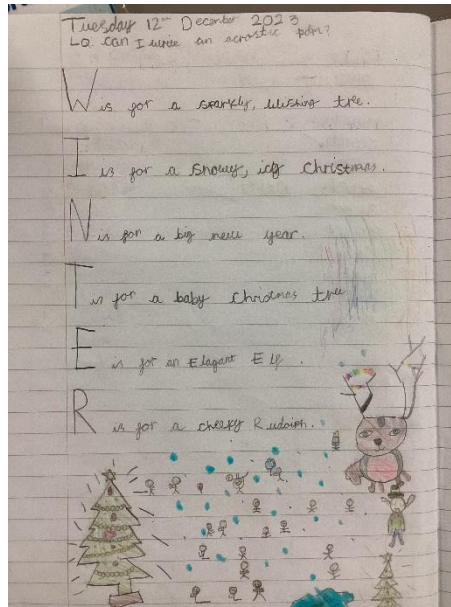 Tuesday 12th December 2023
LO Can I write an acrostic pom?
W is for a sparkly, wishing tree.
I is for a snowy, icy christmas.
N is for a big new year.
T is for a baby Christmas tree
E is for an Elagant Elf.
R is for a cheeky Rudolph.